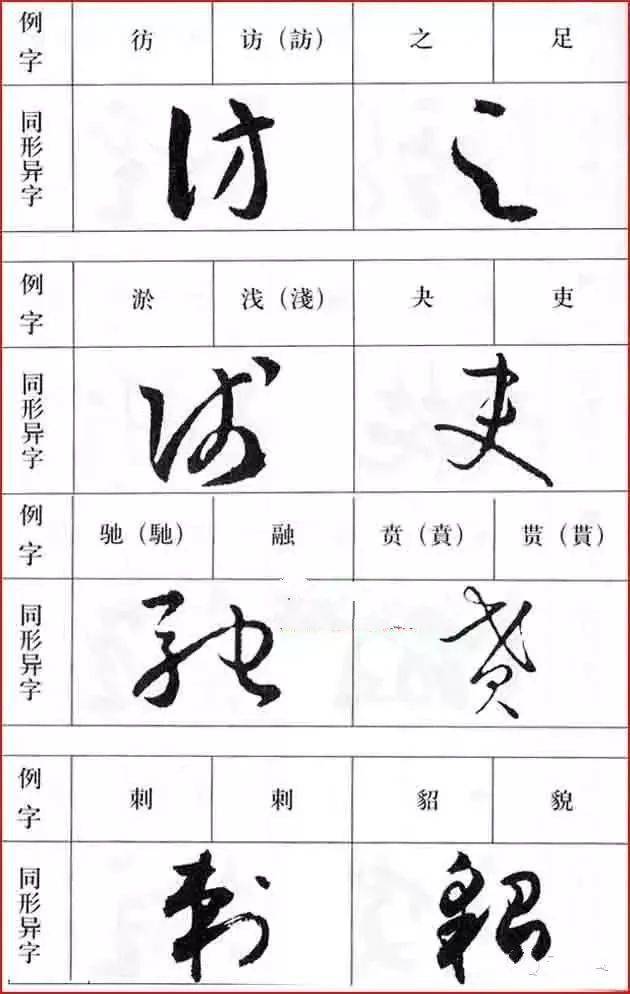 例字 彷 访（訪） 之 足
同形异字
例字 淤 浅（淺） 夬 吏
同形异字
例字 驰（馳） 融 贲（賁） 贳（貰）
同形异字
例字 刺 剌 貂 貌
同形异字